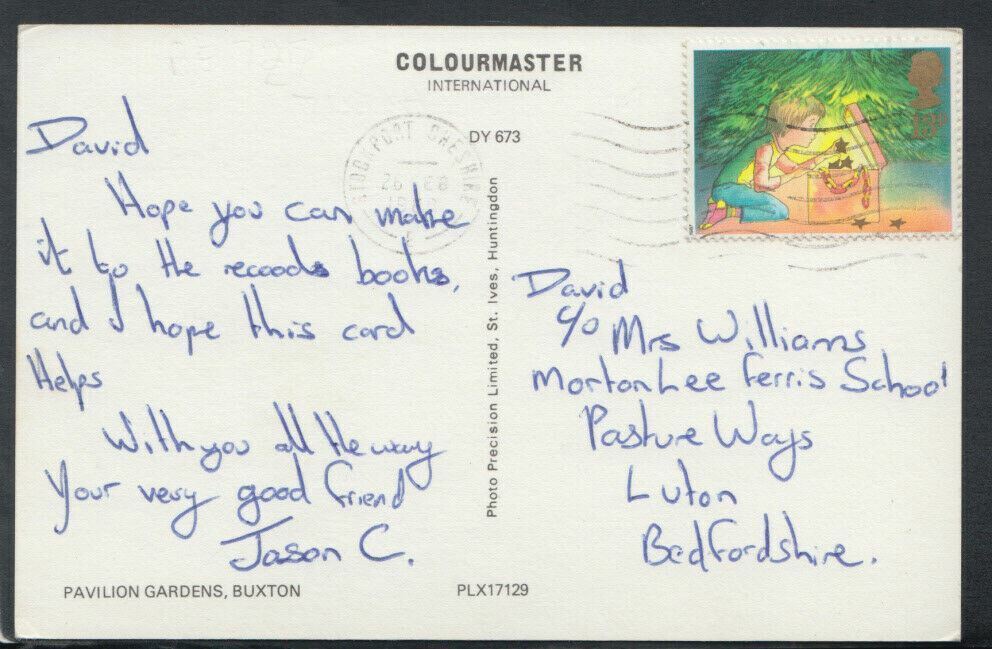 COLOURMASTER
INTERNATIONAL
DY 673
STOCKPORT CHESHIRE
13p
David
Hope you can make
it to the records books,
and I hope this card
Helps
With you all the way
Your very good friend
Jason C.
PAVILION GARDENS, BUXTON
PLX17129
Photo Precision Limited, St. Ives, Huntingdon
David
c/o Mrs Williams
Morton Lee Ferris School
Pasture Ways
Luton
Bedfordshire.